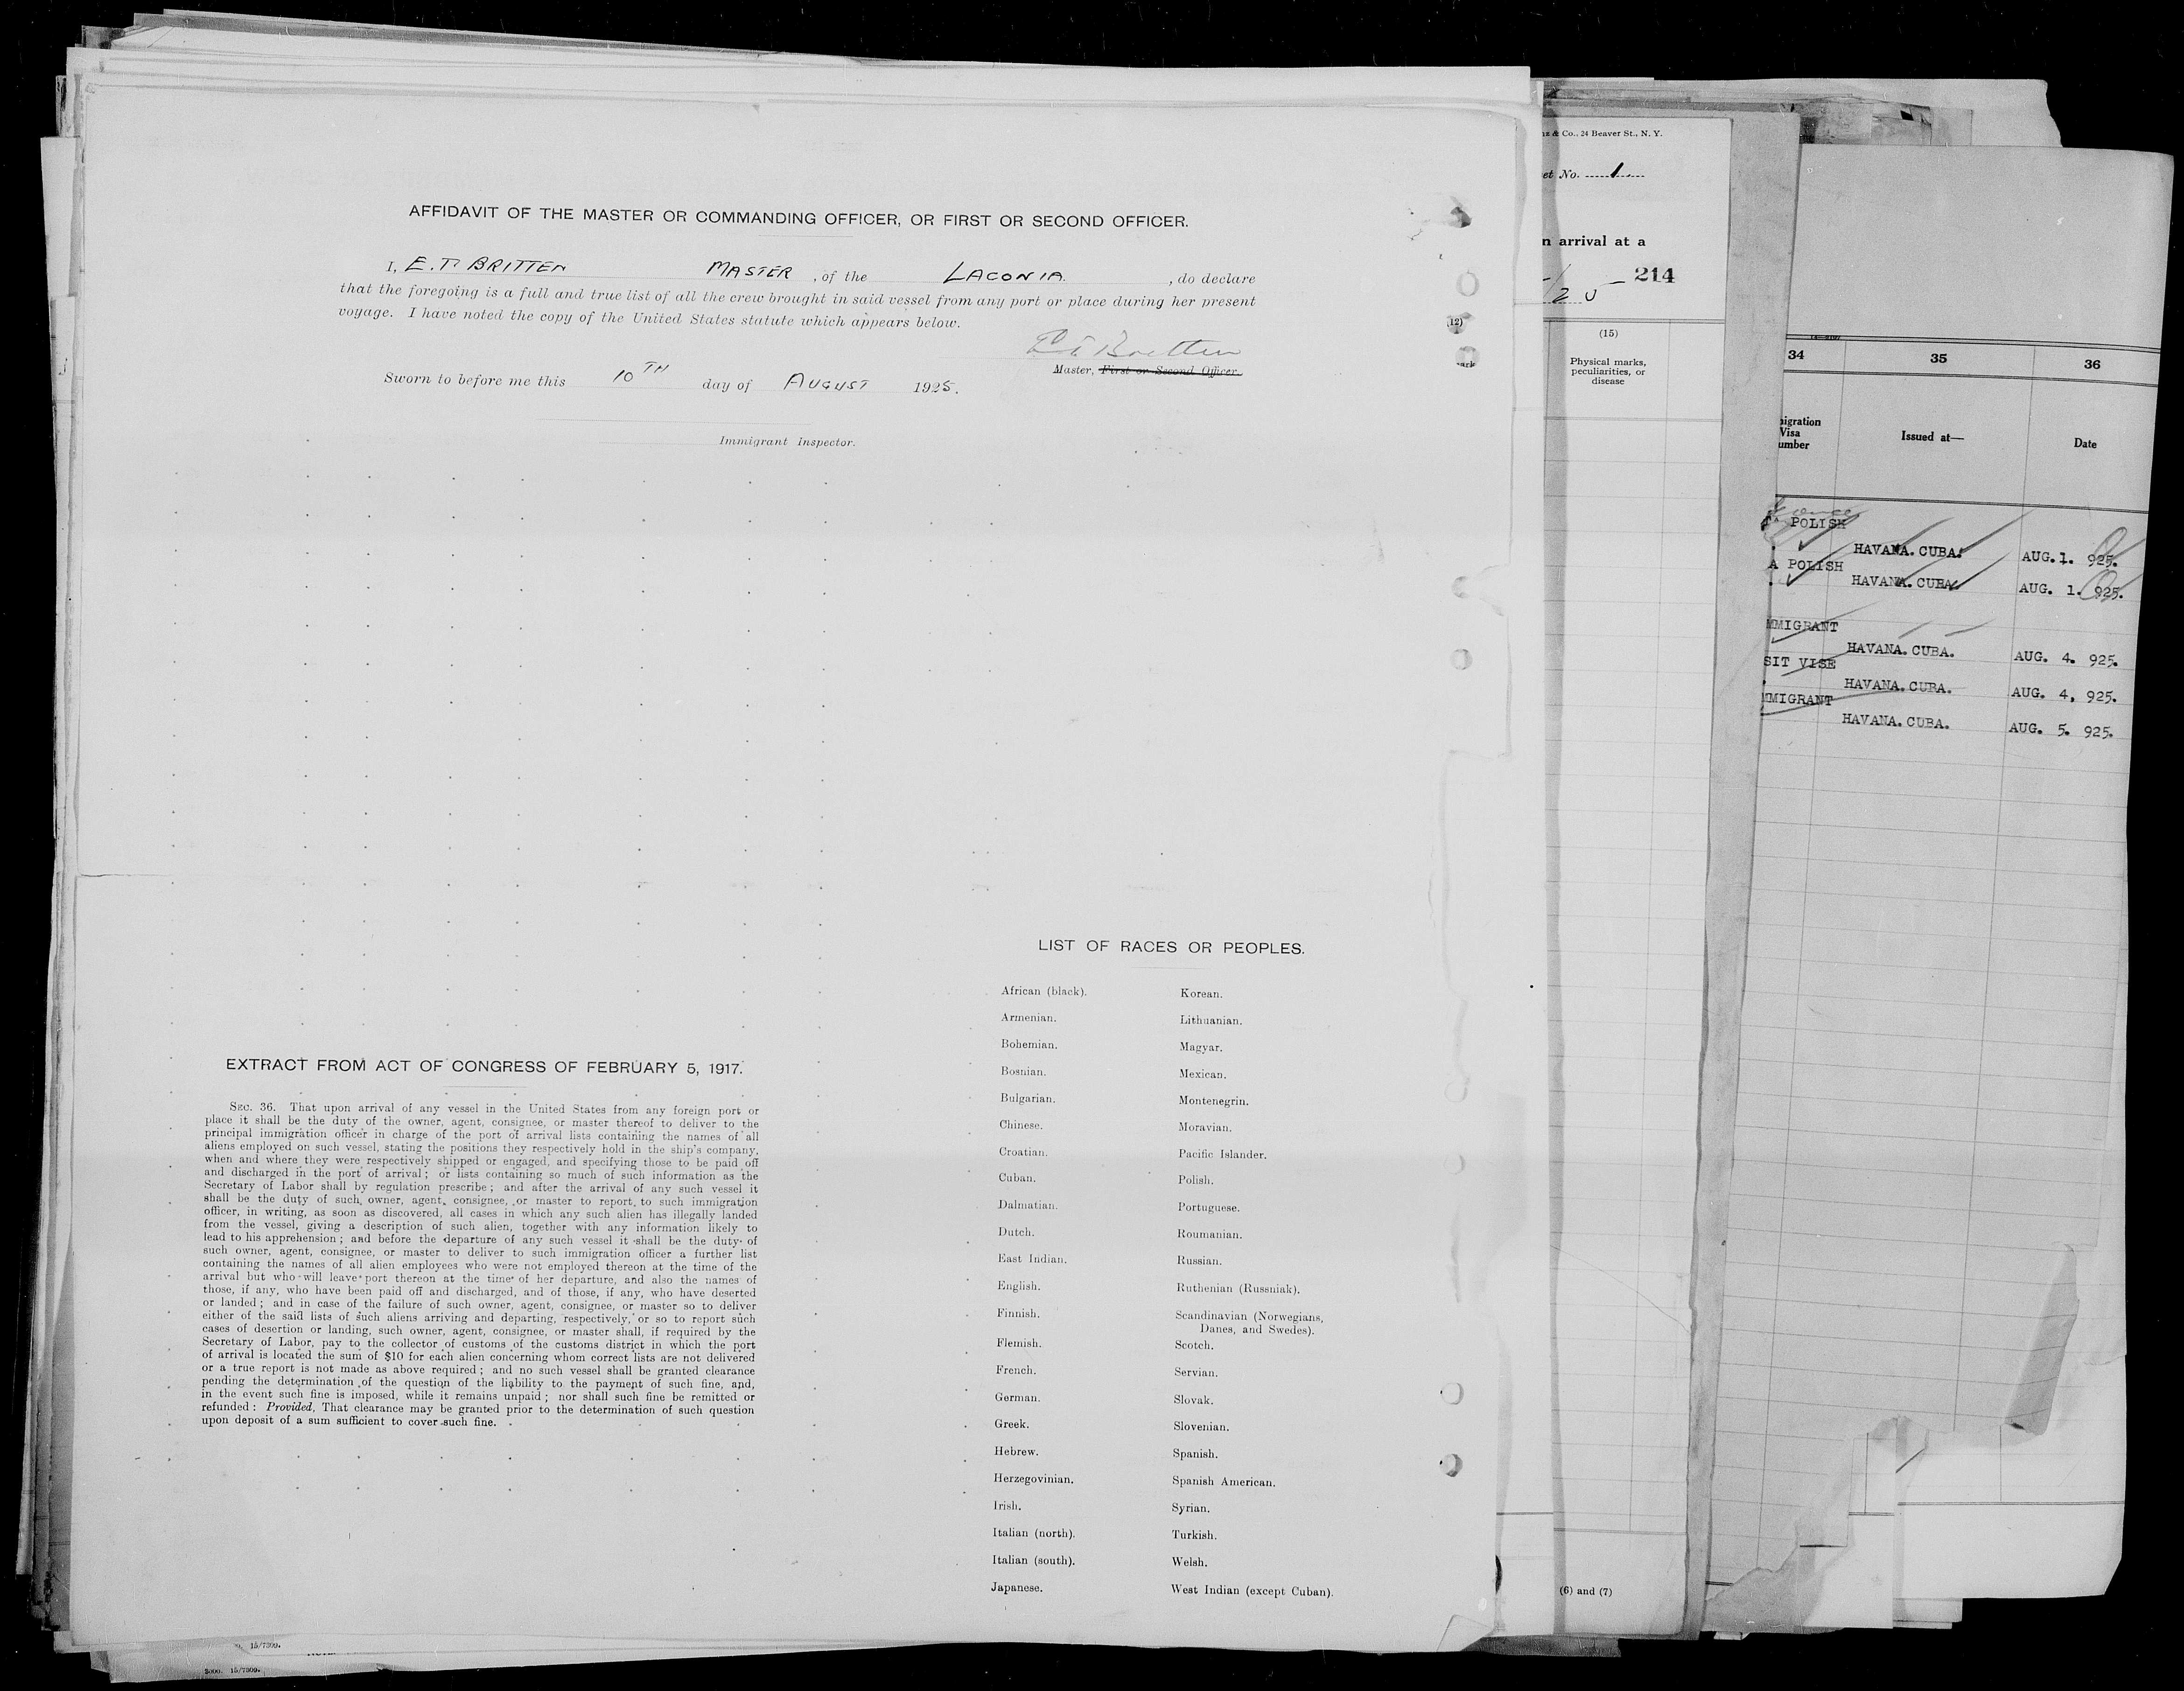 AFFIDAVIT OF THE MASTER OR COMMANDING OFFICER, OR FIRST OR SECOND OFFICER.
I, E.T. BRITTEN MASTER, of the LACONIA. , do declare
that the foregoing is a full and true list of all the crew brought in said vessel from any port or place during her present
voyage. I have noted the copy of the United States statute which appears below.
E T Britten
Master, First or Second Officer.
Sworn to before me this 10TH day of AUGUST 1925.
Immigrant Inspector.
EXTRACT FROM ACT OF CONGRESS OF FEBRUARY 5, 1917.
SEC. 36. That upon arrival of any vessel in the United States from any foreign port or
place it shall be the duty of the owner, agent, consignee, or master thereof to deliver to the
principal immigration officer in charge of the port of arrival lists containing the names of all
aliens employed on such vessel, stating the positions they respectively hold in the ship's company,
when and where they were respectively shipped or engaged, and specifying those to be paid off
and discharged in the port of arrival; or lists containing so much of such information as the
Secretary of Labor shall by regulation prescribe; and after the arrival of any such vessel it
shall be the duty of such owner, agent, consignee, or master to report to such immigration
officer, in writing, as soon as discovered, all cases in which any such alien has illegally landed
from the vessel, giving a description of such alien, together with any information likely to
lead to his apprehension; and before the departure of any such vessel it shall be the duty of
such owner, agent, consignee, or master to deliver to such immigration officer a further list
containing the names of all alien employees who were not employed thereon at the time of the
arrival but who will leave port thereon at the time of her departure, and also the names of
those, if any, who have been paid off and discharged, and of those, if any, who have deserted
or landed; and in case of the failure of such owner, agent, consignee, or master so to deliver
either of the said lists of such aliens arriving and departing, respectively, or so to report such
cases of desertion or landing, such owner, agent, consignee, or master shall, if required by the
Secretary of Labor, pay to the collector of customs of the customs district in which the port
of arrival is located the sum of $10 for each alien concerning whom correct lists are not delivered
or a true report is not made as above required; and no such vessel shall be granted clearance
pending the determination of the question of the liability to the payment of such fine, and,
in the event such fine is imposed, while it remains unpaid; nor shall such fine be remitted or
refunded: Provided, That clearance may be granted prior to the determination of such question
upon deposit of a sum sufficient to cover such fine.
LIST OF RACES OR PEOPLES.
African (black). Korean.
Armenian. Lithuanian.
Bohemian. Magyar.
Bosnian. Mexican.
Bulgarian. Montenegrin.
Chinese. Moravian.
Croatian. Pacific Islander.
Cuban. Polish.
Dalmatian. Portuguese.
Dutch. Roumanian.
East Indian. Russian.
English. Ruthenian (Russniak).
Finnish. Scandinavian (Norwegians,
Danes, and Swedes).
Flemish. Scotch.
French. Servian.
German. Slovak.
Greek. Slovenian.
Hebrew. Spanish.
Herzegovinian. Spanish American.
Irish. Syrian.
Italian (north). Turkish.
Italian (south). Welsh.
Japanese. West Indian (except Cuban).
15/7309.
15/7309.
(12)
& Co., 24 Beaver St., N. Y.
No. 1
arrival at a
214
(15)
Physical marks,
peculiarities, or
disease
(6) and (7)
34 35 36
Visa
Issued at— Date
POLISH
HAVANA. CUBA. AUG. 1. 925.
A POLISH
HAVANA. CUBA AUG. 1. 925.
MMIGRANT
HAVANA. CUBA. AUG. 4. 925.
SIT VISE
HAVANA. CUBA. AUG. 4, 925.
MMIGRANT
HAVANA. CUBA. AUG. 5. 925.